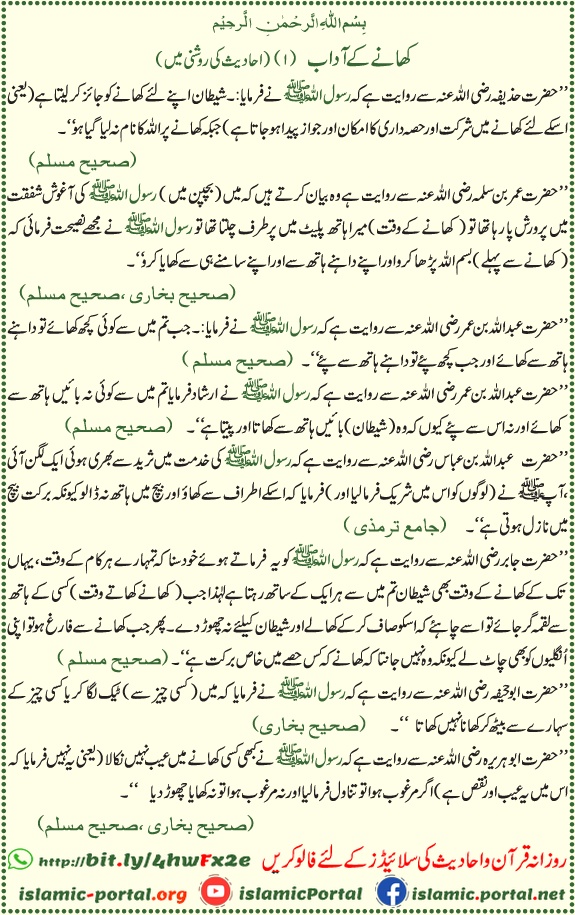 بِسْمِ اللهِ الرَّحْمٰنِ الرَّحِيْمِ
کھانے کے آداب (۱) (احادیث کی روشنی میں)
’’حضرت حذیفہ رضی اللہ عنہ سے روایت ہے کہ رسول اللہ ﷺ نے فرمایا:۔ شیطان اپنے لئے کھانے کو جائز کر لیتا ہے (یعنی
اسکے لئے کھانے میں شرکت اور حصہ داری کا امکان اور جواز پیدا ہو جاتا ہے) جبکہ کھانے پر اللہ کا نام نہ لیا گیا ہو‘‘۔
(صحیح مسلم)
’’حضرت عمر بن سلمہ رضی اللہ عنہ سے روایت ہے وہ بیان کرتے ہیں کہ میں (بچپن میں) رسول اللہ ﷺ کی آغوش شفقت
میں پرورش پا رہا تھا تو (کھانے کے وقت) میرا ہاتھ پلیٹ میں ہر طرف چلتا تھا تو رسول اللہ ﷺ نے مجھے نصیحت فرمائی کہ
(کھانے سے پہلے) بسم اللہ پڑھا کرو اور اپنے داہنے ہاتھ سے اور اپنے سامنے ہی سے کھایا کرو‘‘۔
(صحیح بخاری ،صحیح مسلم)
’’حضرت عبداللہ بن عمر رضی اللہ عنہ سے روایت ہے کہ رسول اللہ ﷺ نے فرمایا:۔ جب تم میں سے کوئی کچھ کھائے تو داہنے
ہاتھ سے کھائے اور جب کچھ پئے تو داہنے ہاتھ سے پئے‘‘۔ (صحیح مسلم)
’’حضرت عبداللہ بن عمر رضی اللہ عنہ سے روایت ہے کہ رسول اللہ ﷺ نے ارشاد فرمایا تم میں سے کوئی نہ بائیں ہاتھ سے
کھائے اور نہ اس سے پئے کیوں کہ وہ (شیطان) بائیں ہاتھ سے کھاتا اور پیتا ہے‘‘۔ (صحیح مسلم)
’’حضرت عبداللہ بن عباس رضی اللہ عنہ سے روایت ہے کہ رسول اللہ ﷺ کی خدمت میں ثرید سے بھری ہوئی ایک لگن آئی
،آپ ﷺ نے (لوگوں کو اس میں شریک فرما لیا اور) فرمایا کہ اسکے اطراف سے کھاؤ اور بیچ میں ہاتھ نہ ڈالو کیونکہ برکت بیچ
میں نازل ہوتی ہے‘‘۔ (جامع ترمذی)
’’حضرت جابر رضی اللہ عنہ سے روایت ہے کہ رسول اللہ ﷺ کو یہ فرماتے ہوئے خود سنا کہ تمہارے ہر کام کے وقت، یہاں
تک کے کھانے کے وقت بھی شیطان تم میں سے ہر ایک کے ساتھ رہتا ہے لہٰذا جب (کھانے کھاتے وقت) کسی کے ہاتھ
سے لقمہ گر جائے تو اسے چاہئے کہ اسکو صاف کر کے کھالے اور شیطان کیلئے نہ چھوڑ دے۔ پھر جب کھانے سے فارغ ہو تو اپنی
اُنگلیوں کو بھی چاٹ لے کیونکہ وہ نہیں جانتا کہ کھانے کے کس حصے میں خاص برکت ہے‘‘۔ (صحیح مسلم)
’’حضرت ابوجحیفہ رضی اللہ عنہ سے روایت ہے کہ رسول اللہ ﷺ نے فرمایا کہ میں (کسی چیز سے) ٹیک لگا کر یا کسی چیز کے
سہارے سے بیٹھ کر کھانا نہیں کھاتا ‘‘۔ (صحیح بخاری)
’’حضرت ابو ہریرہ رضی اللہ عنہ سے روایت ہے کہ رسول اللہ ﷺ نے کبھی کسی کھانے میں عیب نہیں نکالا (یعنی یہ نہیں فرمایا کہ
اس میں یہ عیب اور نقص ہے) اگر مرغوب ہوا تو تناول فرما لیا اور نہ مرغوب ہوا تو نہ کھایا چھوڑ دیا ‘‘۔
(صحیح بخاری ،صحیح مسلم)
روزانہ قرآن و احادیث کی سلائیڈز کے لئے فالو کریں http://bit.ly/4hwFx2e
islamic-portal.org islamicPortal islamic.portal.net